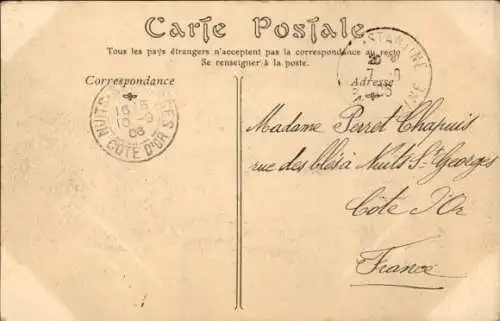 Carte Postale
Tous les pays étrangers n'acceptent pas la correspondance au recto
Se renseigner à la poste.
Correspondance
Adresse
NUITS-S GES
6 15
6 -9
06
COTE D'OR
CONSTANTINE
20
7 -9
Madame Perret Chapuis
rue des blés à Nuits St Georges
Côte d'Or
France